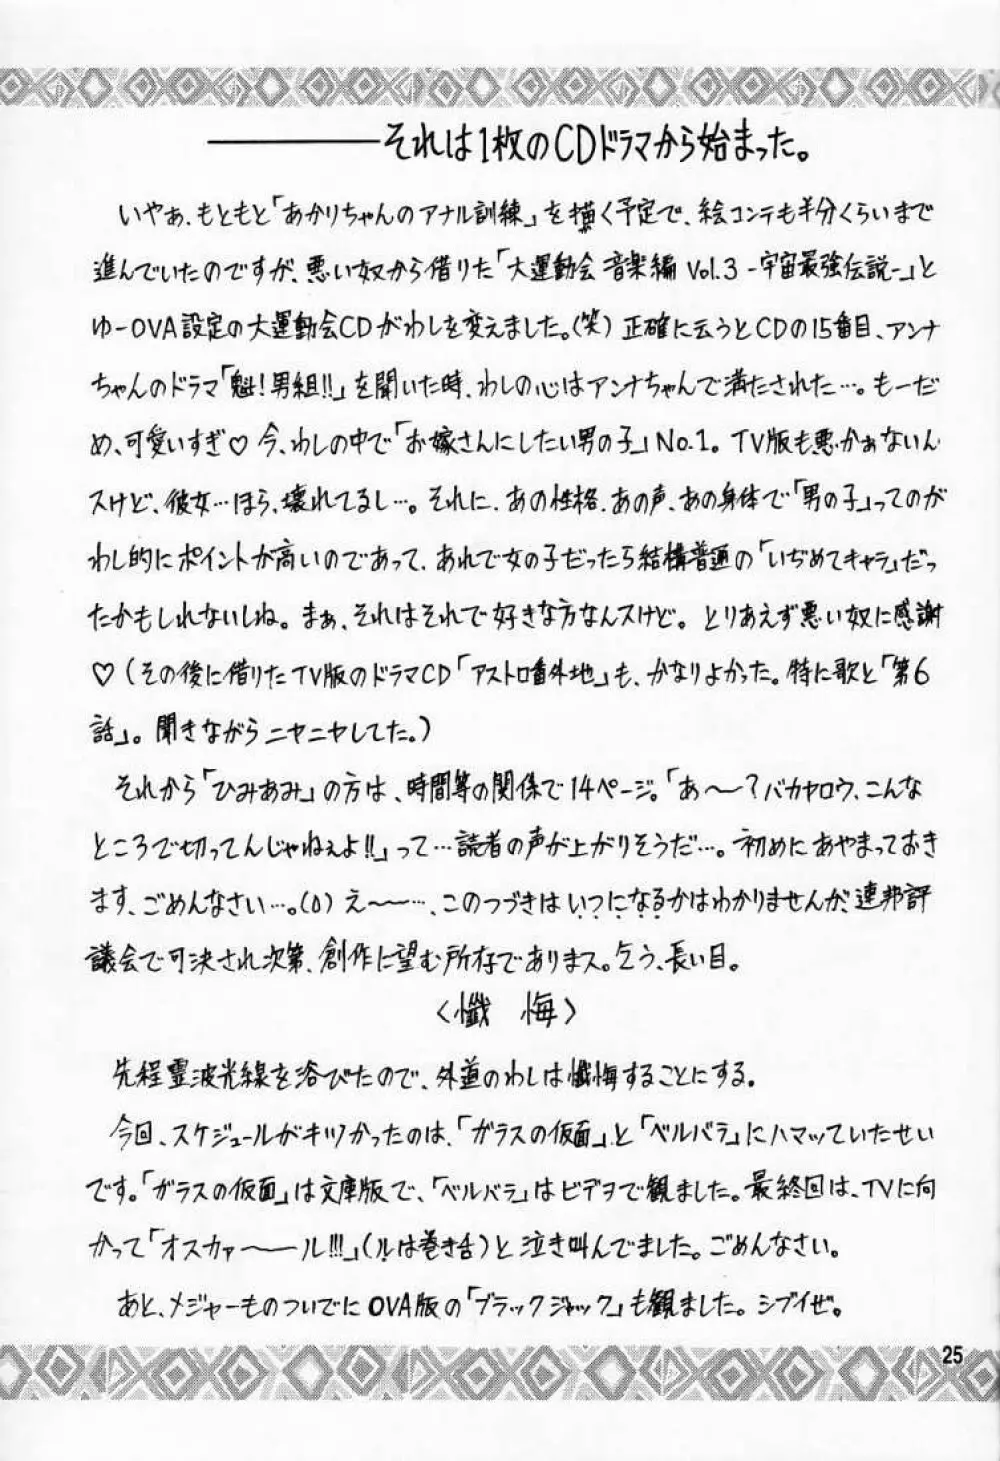 それは1枚のCDドラマから始まった。
いやぁ、もともと「あかりちゃんのアナル訓練」を描く予定で、絵コンテも半分くらいまで
進んでいたのですが、悪い奴から借りた「大運動会 音楽編 Vol.3 -宇宙最強伝説-」と
ゆーOVA設定の大運動会CDがわしを変えました。(笑) 正確に云うとCDの15番目、アンナ
ちゃんのドラマ「魁!男組!!」を聞いた時、わしの心はアンナちゃんで満たされた…。もーだ
め、可愛いすぎ♡ 今、わしの中で「お嫁さんにしたい男の子」No.1。TV版も悪かぁないん
スけど、彼女…ほら、壊れてるし…。それに、あの性格、あの声、あの身体で「男の子」ってのが
わし的にポイントが高いのであって、あれで女の子だったら結構普通の「いぢめてキャラ」だっ
たかもしれないしね。まぁ、それはそれで好きな方なんスけど。とりあえず悪い奴に感謝
♡(その後に借りたTV版のドラマCD「アストロ番外地」も、かなりよかった。特に歌と「第6
話」。聞きながらニヤニヤしてた。)
それから「ひみあみ」の方は、時間等の関係で14ページ。「あ〜〜?バカヤロウ、こんな
ところで切ってんじゃねぇよ!!」って…読者の声が上がりそうだ…。初めにあやまっておき
ます、ごめんなさい…。(O) え〜〜…、このつづきはいつになるかはわかりませんが、連邦評
議会で可決され次第、創作に望む所存でありまス。乞う、長い目。
〈懺 悔〉
先程霊波光線を浴びたので、外道のわしは懺悔することにする。
今回、スケジュールがキツかったのは、「ガラスの仮面」と「ベルバラ」にハマッていたせい
です。「ガラスの仮面」は文庫版で、「ベルバラ」はビデヲで観ました。最終回は、TVに向
かって「オスカァ〜〜ル!!!」(ルは巻き舌)と泣き叫んでました。ごめんなさい。
あと、メジャーものついでにOVA版の「ブラックジャック」も観ました。シブイぜ。
25